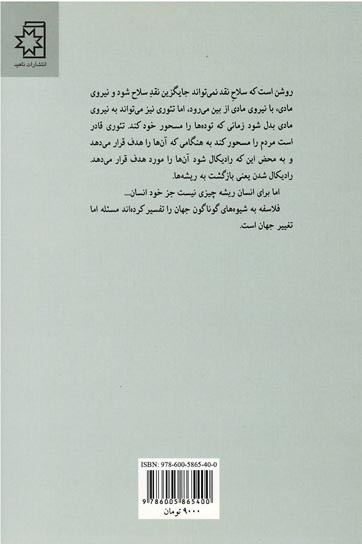 انتشارات ناهید
روشن است که سلاحِ نقد نمی‌تواند جایگزین نقدِ سلاح شود و نیروی
مادی، با نیروی مادی از بین می‌رود، اما تئوری نیز می‌تواند به نیروی
مادی بدل شود زمانی که توده‌ها را مسحور خود کند. تئوری قادر
است مردم را مسحور کند به هنگامی که آن‌ها را هدف قرار می‌دهد
و به محض این که رادیکال شود آن‌ها را مورد هدف قرار می‌دهد.
رادیکال شدن یعنی بازگشت به ریشه‌ها.
اما برای انسان ریشه چیزی نیست جز خود انسان...
فلاسفه به شیوه‌های گوناگون جهان را تفسیر کرده‌اند مسئله اما
تغییر جهان است.
ISBN: 978-600-5865-40-0
9 786005 865400
۹۰۰۰ تومان